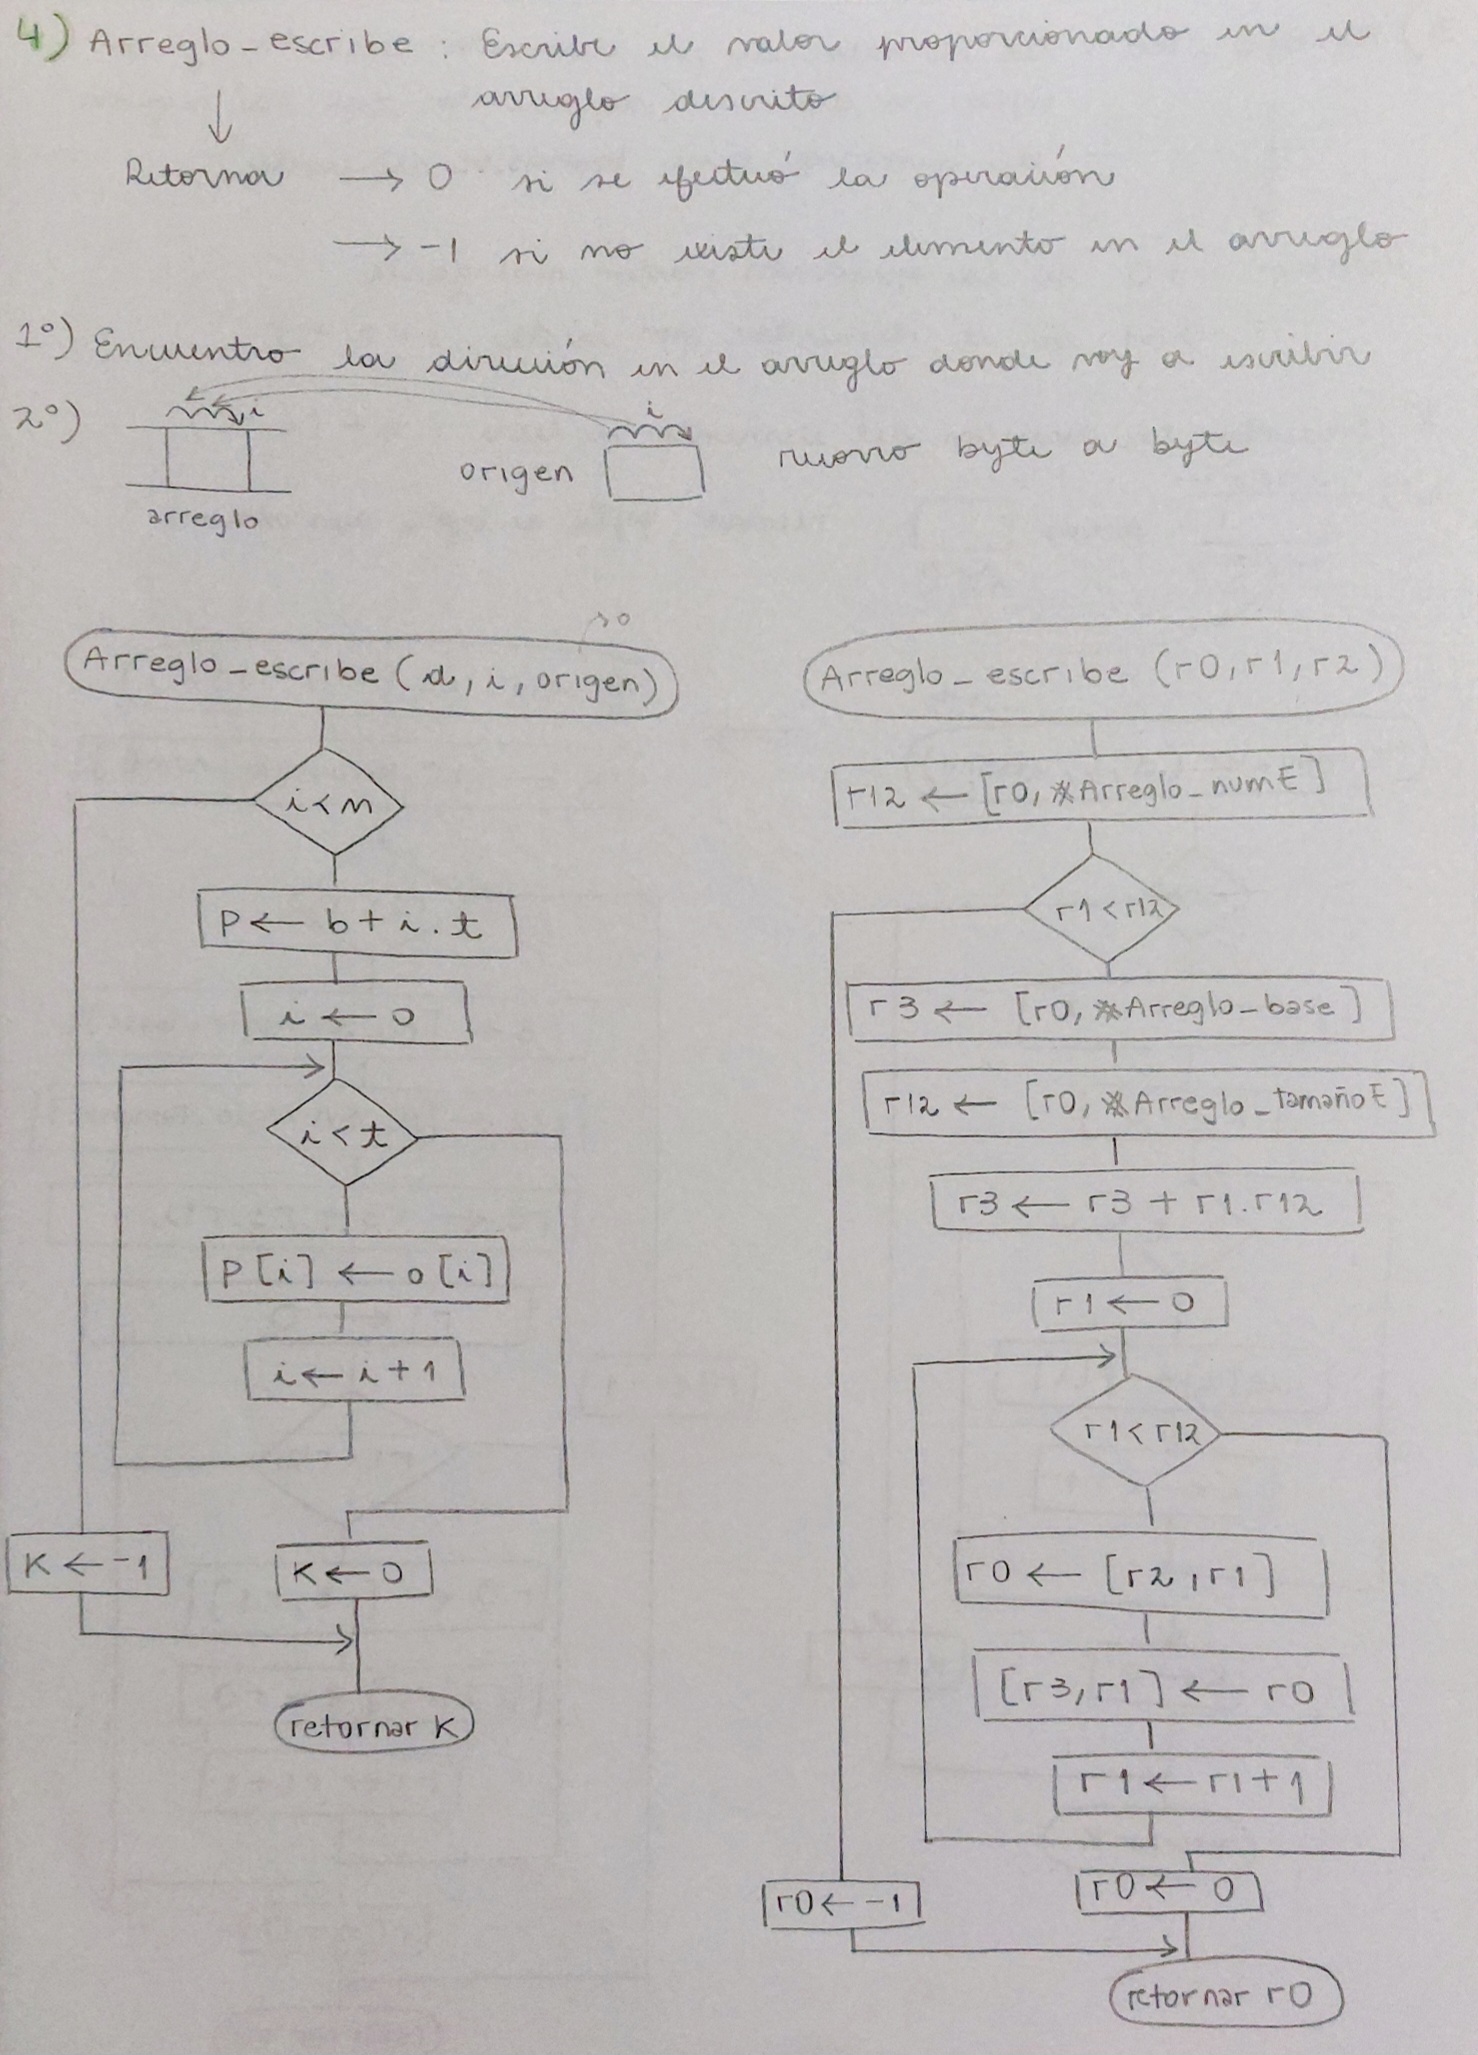 4) Arreglo_escribe : Escribe el valor proporcionado en el
arreglo descrito
↓
Retorna → 0 si se efectuó la operación
→ -1 si no existe el elemento en el arreglo
1º) Encuentro la dirección en el arreglo donde voy a escribir
2º) i i
origen recorro byte a byte
arreglo
Arreglo_escribe (d, i, origen)
i < n
p ← b + i . t
i ← 0
i < t
p [i] ← o [i]
i ← i + 1
K ← -1
K ← 0
retornar K
Arreglo_escribe (r0, r1, r2)
r12 ← [r0, #Arreglo_numE]
r1 < r12
r3 ← [r0, #Arreglo_base]
r12 ← [r0, #Arreglo_tamañoE]
r3 ← r3 + r1 . r12
r1 ← 0
r1 < r12
r0 ← [r2, r1]
[r3, r1] ← r0
r1 ← r1 + 1
r0 ← -1
r0 ← 0
retornar r0